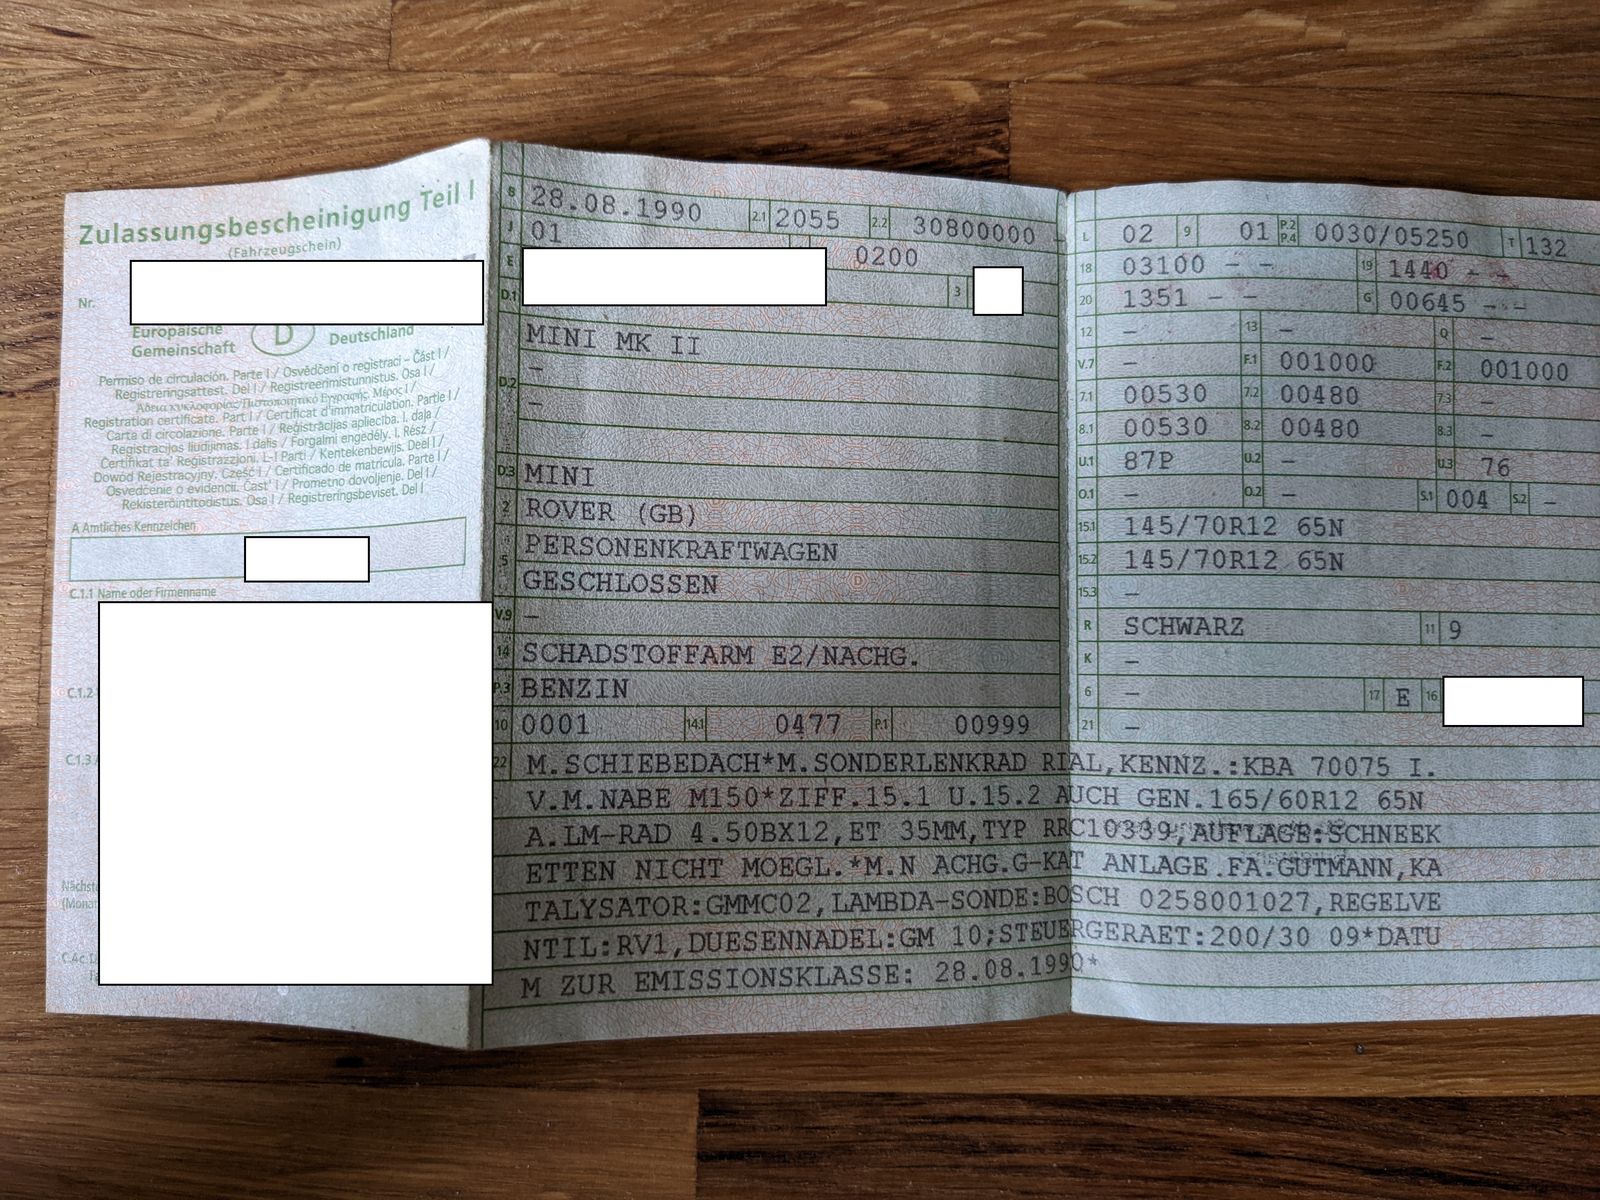 Zulassungsbescheinigung Teil I
(Fahrzeugschein)
Nr.
Europäische Gemeinschaft D Deutschland
Permiso de circulación. Parte I / Osvědčení o registraci – Část I /
Registreringsattest. Del I / Registreerimistunnistus. Osa I /
Άδεια κυκλοφορίας/Πιστοποιητικό Εγγραφής. Μέρος I /
Registration certificate. Part I / Certificat d'immatriculation. Partie I /
Carta di circolazione. Parte I / Reģistrācijas apliecība. I. daļa /
Registracijos liudijimas. I dalis / Forgalmi engedély. I. Rész /
Certifikat ta' Reġistrazzjoni. L-I Parti / Kentekenbewijs. Deel I /
Dowód Rejestracyjny. Część I / Certificado de matrícula. Parte I /
Osvedčenie o evidencii. Časť I / Prometno dovoljenje. Del I /
Rekisteröintitodistus. Osa I / Registreringsbeviset. Del I
A Amtliches Kennzeichen
C.1.1 Name oder Firmenname
C.1.2
C.1.3
Nächste
(Monat
B 28.08.1990 2.1 2055 2.2 30800000 –
J 01 0200
E
D.1 3
MINI MK II
–
D.2
–
D.3 MINI
2 ROVER (GB)
5 PERSONENKRAFTWAGEN
GESCHLOSSEN
V.9 –
14 SCHADSTOFFARM E2/NACHG.
P.3 BENZIN
10 0001 14.1 0477 P.1 00999
L 02 9 01 P.2 P.4 0030/05250 T 132
18 03100 – – 19 1440 – –
20 1351 – – G 00645 – –
12 – 13 – Q –
V.7 – F.1 001000 F.2 001000
7.1 00530 7.2 00480 7.3 –
8.1 00530 8.2 00480 8.3 –
U.1 87P U.2 – U.3 76
O.1 – O.2 – S.1 004 S.2 –
15.1 145/70R12 65N
15.2 145/70R12 65N
15.3 –
R SCHWARZ 11 9
K –
6 – 17 E 16
21 –
22 M.SCHIEBEDACH*M.SONDERLENKRAD RIAL,KENNZ.:KBA 70075 I.
V.M.NABE M150*ZIFF.15.1 U.15.2 AUCH GEN.165/60R12 65N
A.LM-RAD 4.50BX12,ET 35MM,TYP RRC10339,AUFLAGE:SCHNEEK
ETTEN NICHT MOEGL.*M.N ACHG.G-KAT ANLAGE.FA.GUTMANN,KA
TALYSATOR:GMMC02,LAMBDA-SONDE:BOSCH 0258001027,REGELVE
NTIL:RV1,DUESENNADEL:GM 10;STEUERGERAET:200/30 09*DATU
M ZUR EMISSIONSKLASSE: 28.08.1990*